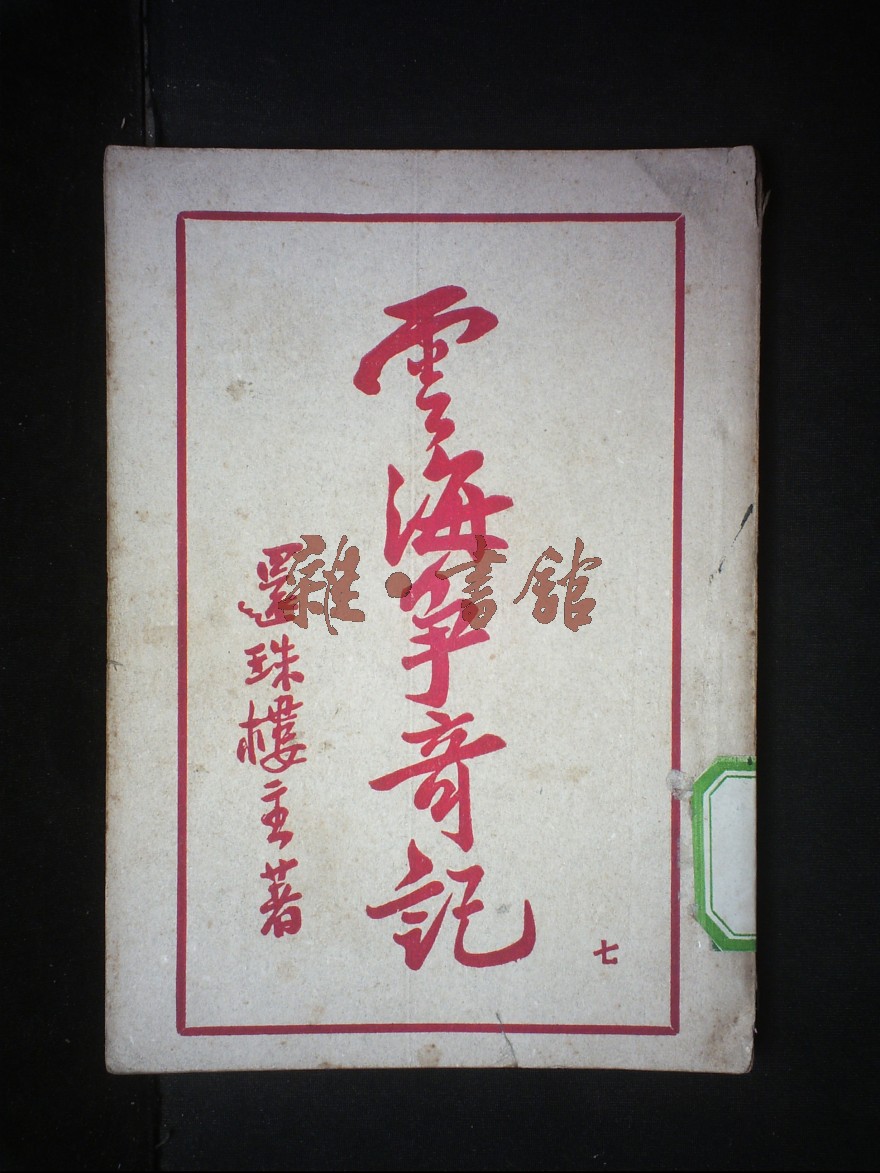 雲海爭奇記
還珠樓主著
七
雜·書館